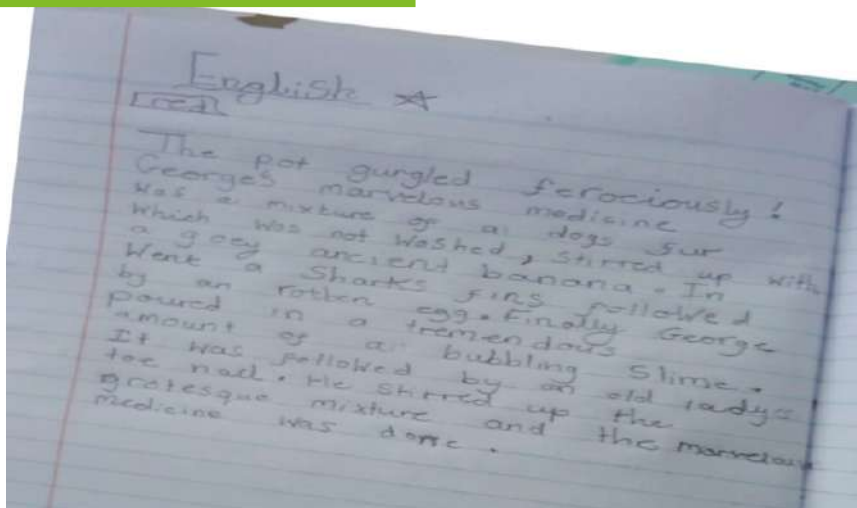 English ☆
The pot gurgled ferociously!
Georges marvelous medicine
was a mixture of a dogs fur
which was not washed, stirred up with
a goey ancient banana. In
went a Sharks fins followed
by an rotten egg. Finally George
poured in a tremendous
amount of a bubbling Slime.
It was followed by an old ladys
toe nail. He stirred up the
grotesque mixture and the marvelous
medicine was done.